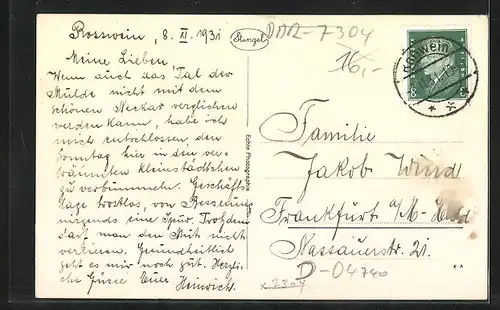 Rosswein, 8. XI. 1931
Meine Lieben
Wenn auch das Tal der
Mulde nicht mit dem
schönen Neckar verglichen
werden kann, habe ich
mich entschlossen den
Sonntag hier in den ver-
träumten Kleinstädtchen
zu verbummeln. Geschäfts-
lage trostlos, von Besserung
nirgends eine Spur. Trotzdem
darf man den Mut nicht
verlieren. Gesundheitlich
geht es mir noch gut. Herzli-
che Grüsse Euer Heinrich.
Stengel
Echte Photographie
DDR-7304
16,-
Roßwein
8 8
Familie
Jakob Wind
Frankfurt a/M-
Nassauerstr. 21.
D-04740
x 7304